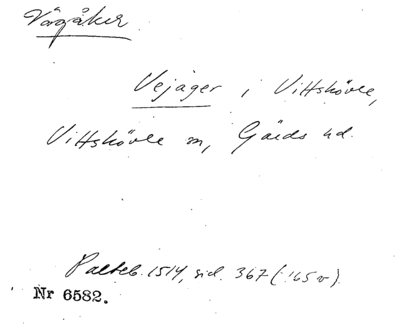 Vägåker
Vejager i Vittskövle,
Vittskövle sn, Gärds hd.
Palteb. 1514, sid. 367 (:165 v)
Nr 6582.